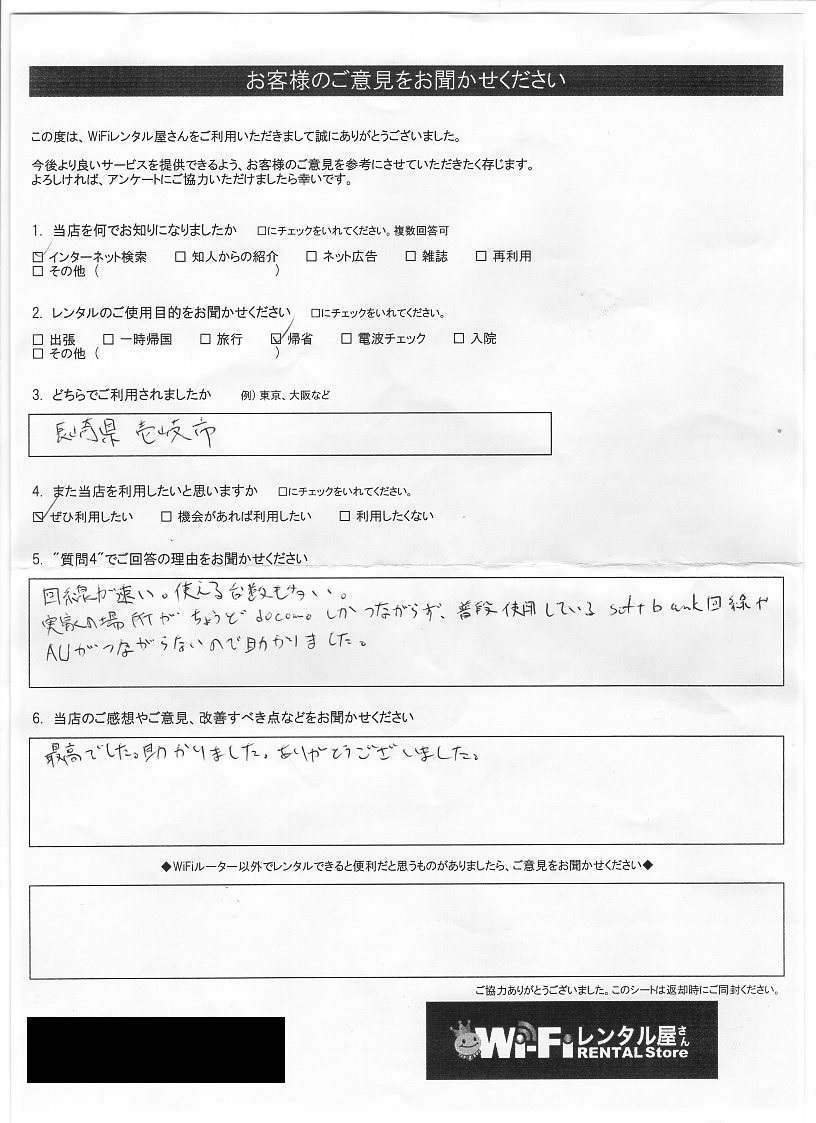 お客様のご意見をお聞かせください
この度は、WiFiレンタル屋さんをご利用いただきまして誠にありがとうございました。
今後より良いサービスを提供できるよう、お客様のご意見を参考にさせていただきたく存じます。
よろしければ、アンケートにご協力いただけましたら幸いです。
1. 当店を何でお知りになりましたか □にチェックをいれてください。複数回答可
☑ インターネット検索 □ 知人からの紹介 □ ネット広告 □ 雑誌 □ 再利用
□ その他 ( )
2. レンタルのご使用目的をお聞かせください □にチェックをいれてください。
□ 出張 □ 一時帰国 □ 旅行 ☑ 帰省 □ 電波チェック □ 入院
□ その他 ( )
3. どちらでご利用されましたか 例) 東京、大阪など
長崎県 壱岐市
4. また当店を利用したいと思いますか □にチェックをいれてください。
☑ ぜひ利用したい □ 機会があれば利用したい □ 利用したくない
5. "質問4"でご回答の理由をお聞かせください
回線が速い。使える台数も多い。
実家の場所がちょうどdocomoしかつながらず、普段使用しているsoftbank回線や
AUがつながらないので助かりました。
6. 当店のご感想やご意見、改善すべき点などをお聞かせください
最高でした。助かりました。ありがとうございました。
◆WiFiルーター以外でレンタルできると便利だと思うものがありましたら、ご意見をお聞かせください◆
ご協力ありがとうございました。このシートは返却時にご同封ください。
Wi-Fiレンタル屋さん
RENTAL Store